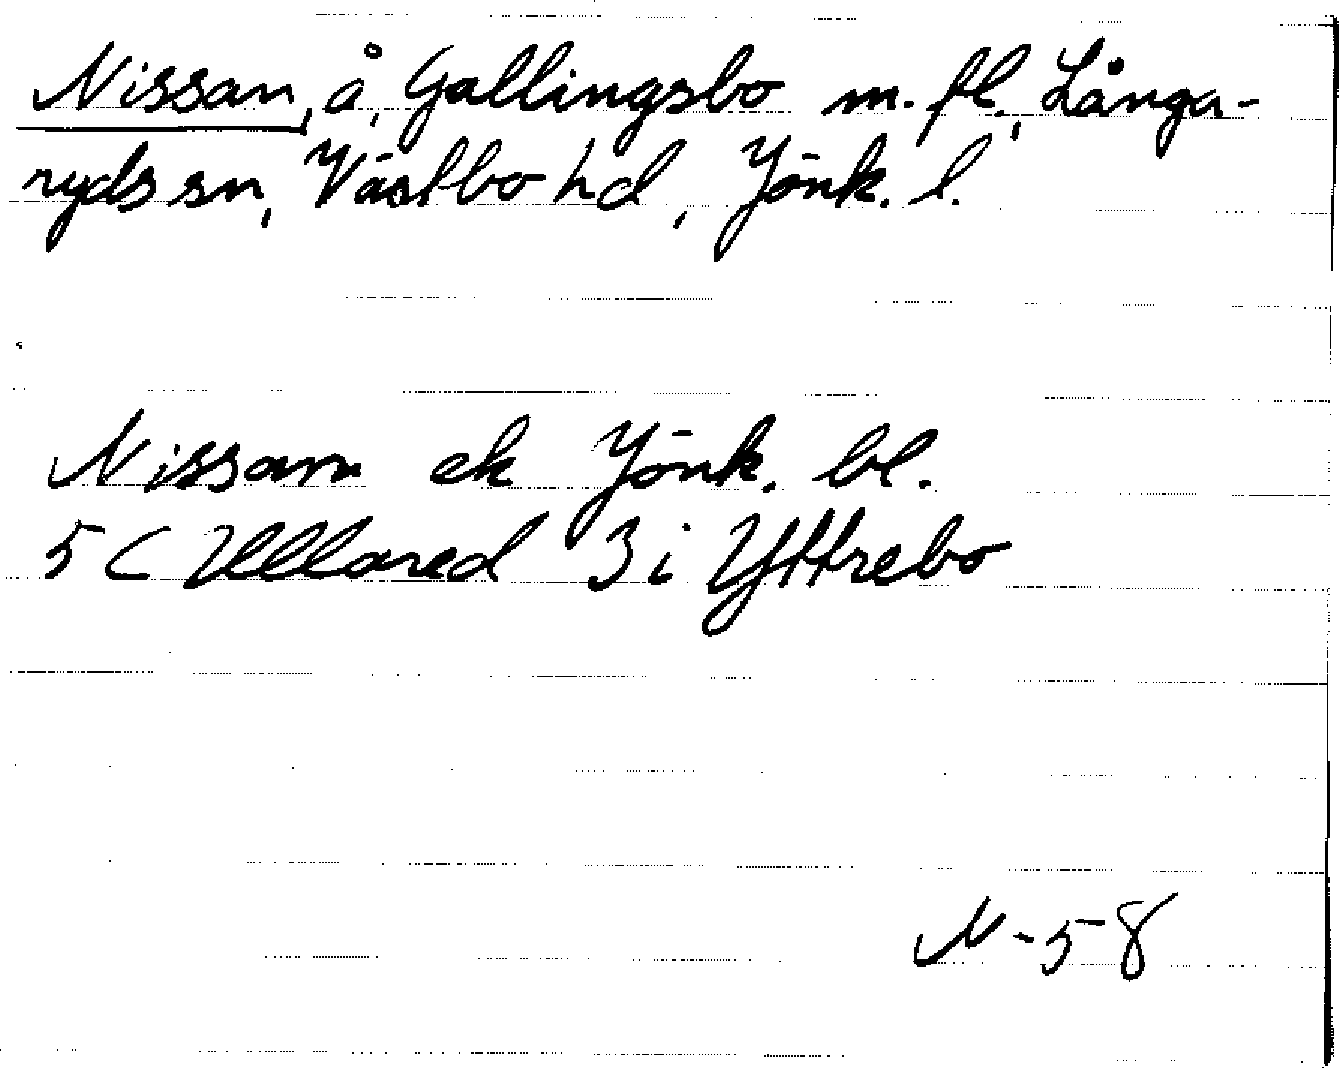 Nissan, å, Gallingsbo m. fl., Långa-
ryds sn, Västbo hd, Jönk. l.
Nissan ek Jönk. bl.
5 C Ullared 3 i Yttrebo
N-58